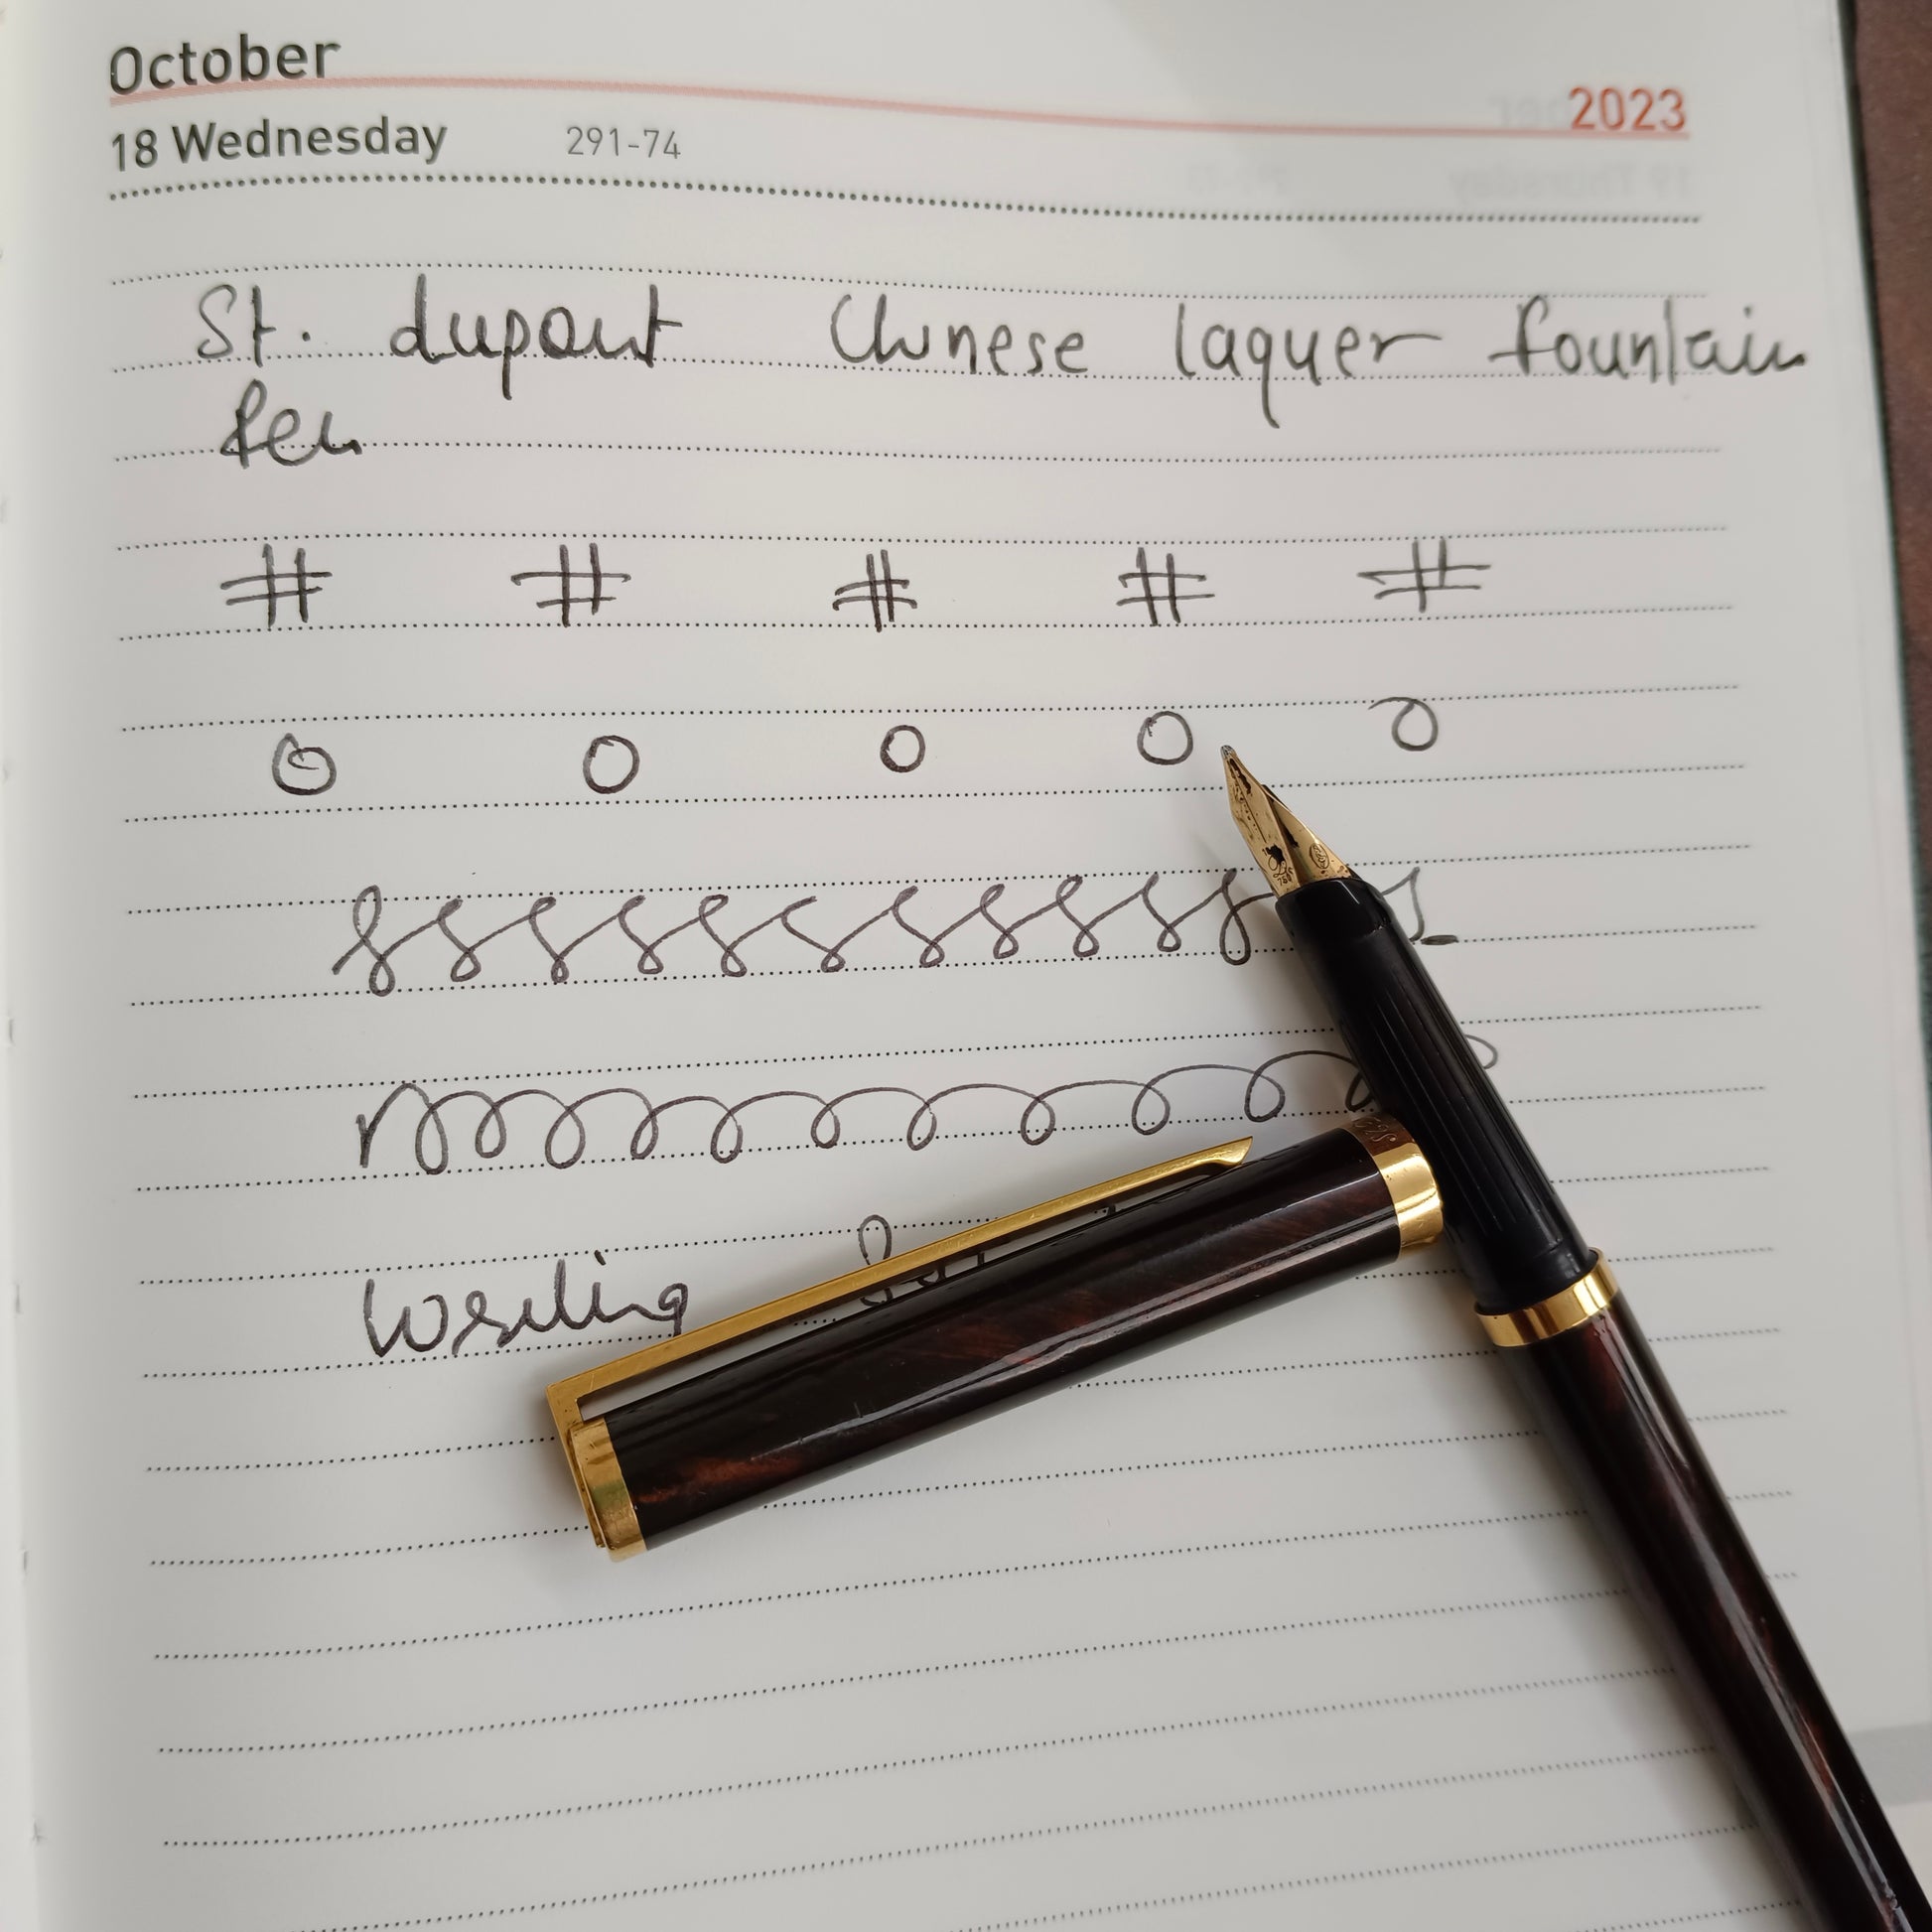 October
2023
18 Wednesday 291-74
St. dupont Chinese laquer fountain
Pen
# # # # #
O O O O O
Writing